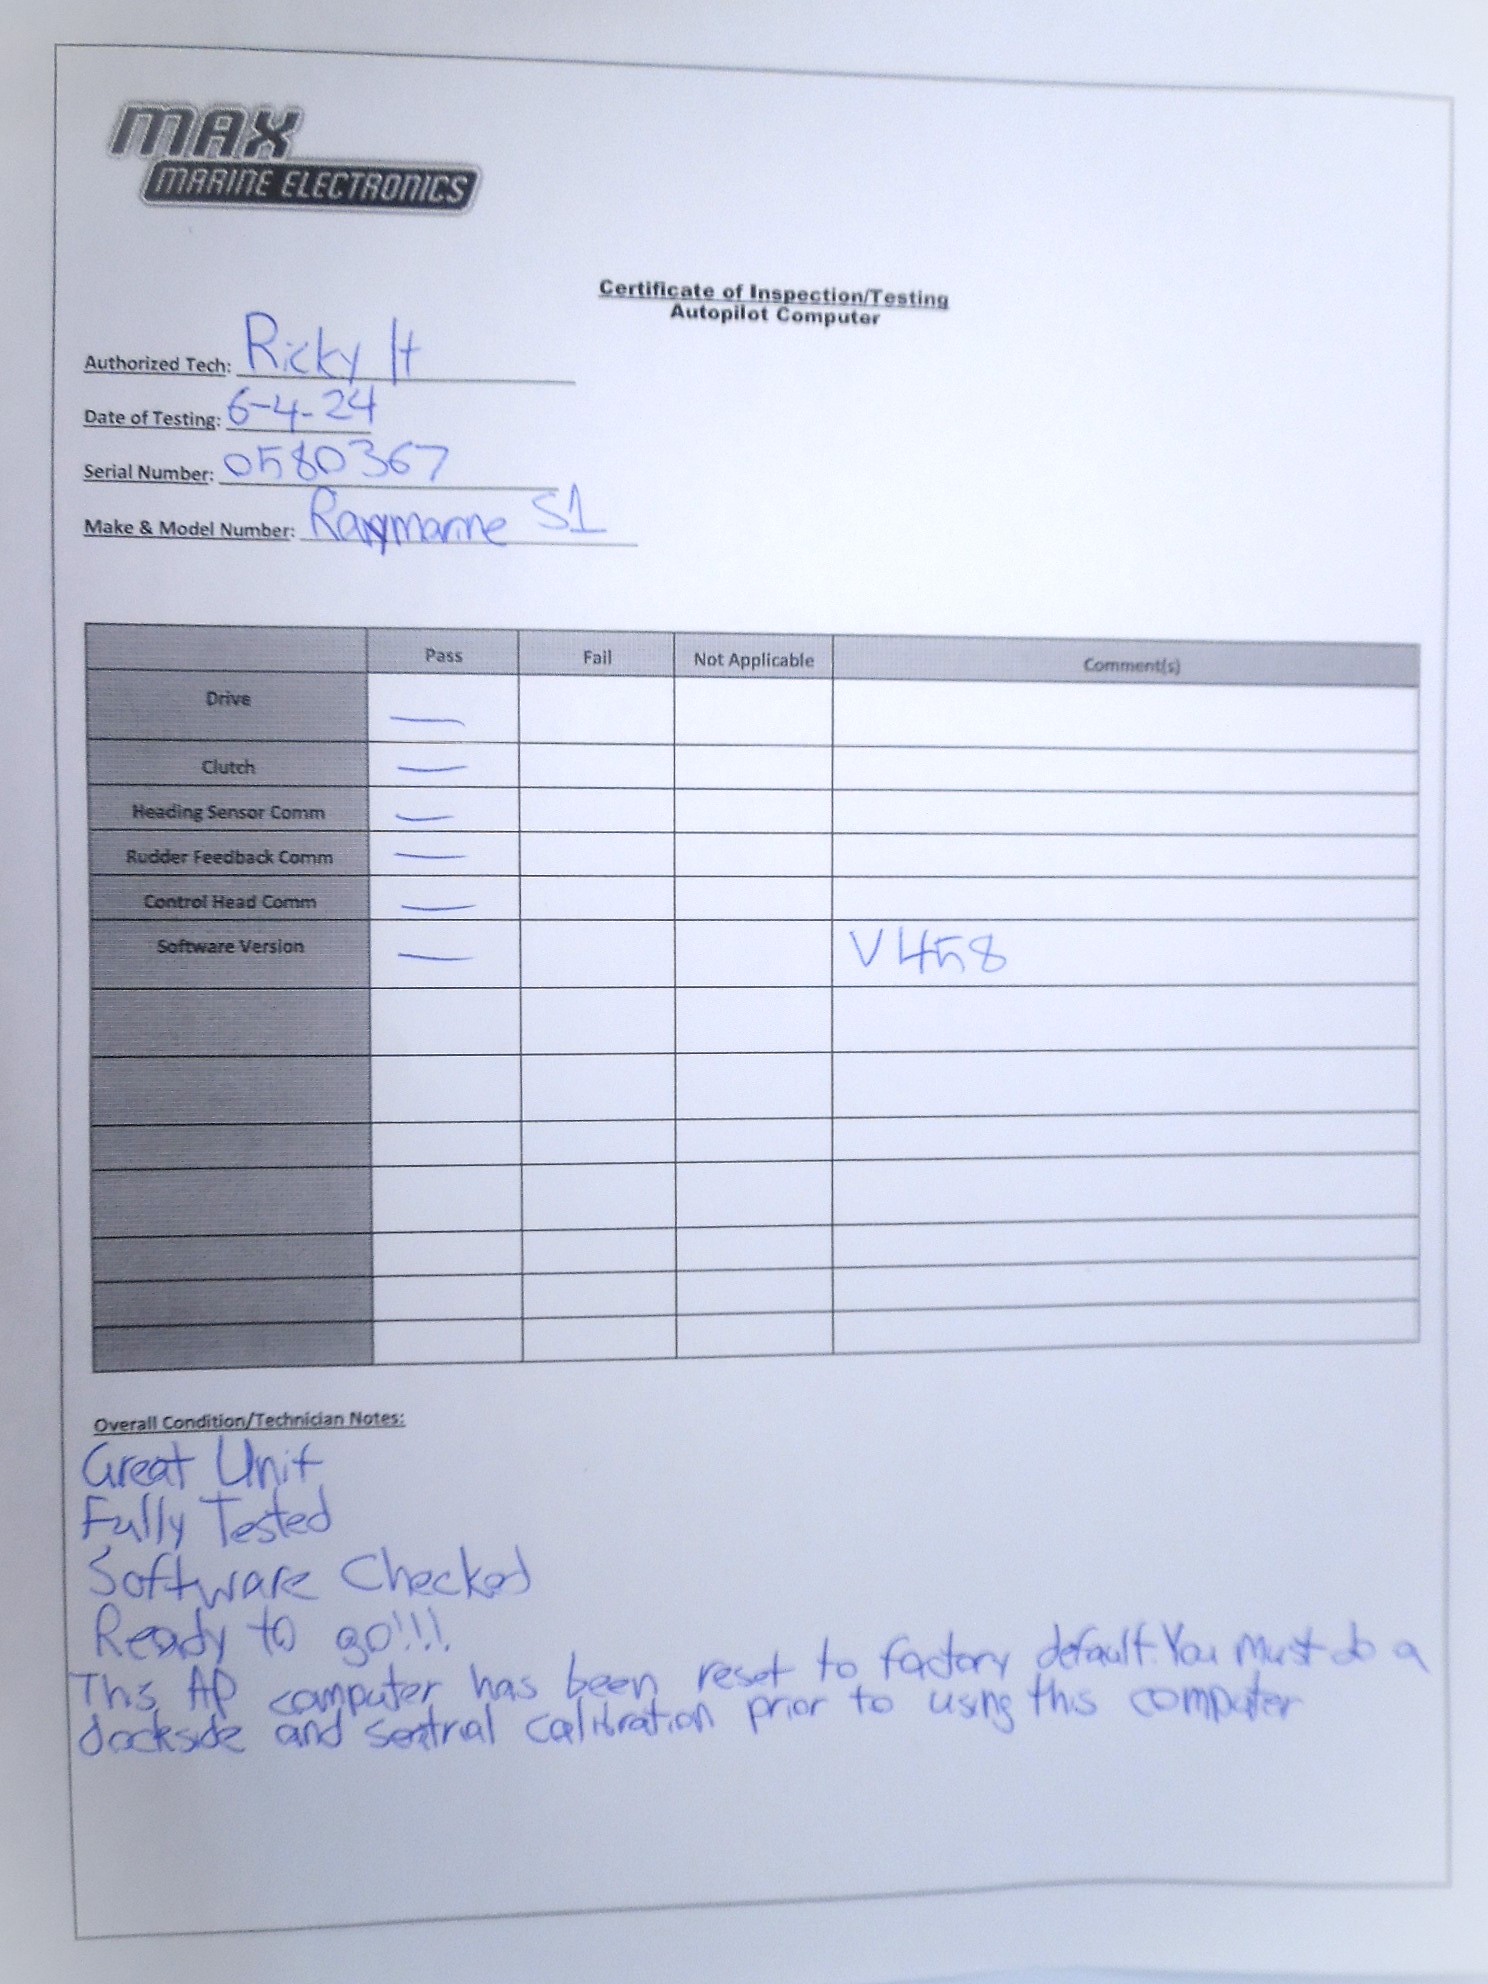 MAX
MARINE ELECTRONICS
Certificate of Inspection/Testing
Autopilot Computer
Authorized Tech: Ricky H
Date of Testing: 6-4-24
Serial Number: 0580367
Make & Model Number: Raymarine S1
Pass Fail Not Applicable Comment(s)
Drive —
Clutch —
Heading Sensor Comm —
Rudder Feedback Comm —
Control Head Comm —
Software Version — V458
Overall Condition/Technician Notes:
Great Unit
Fully Tested
Software Checked
Ready to go!!!
This AP computer has been reset to factory default. You must do a
dockside and seatrial calibration prior to using this computer